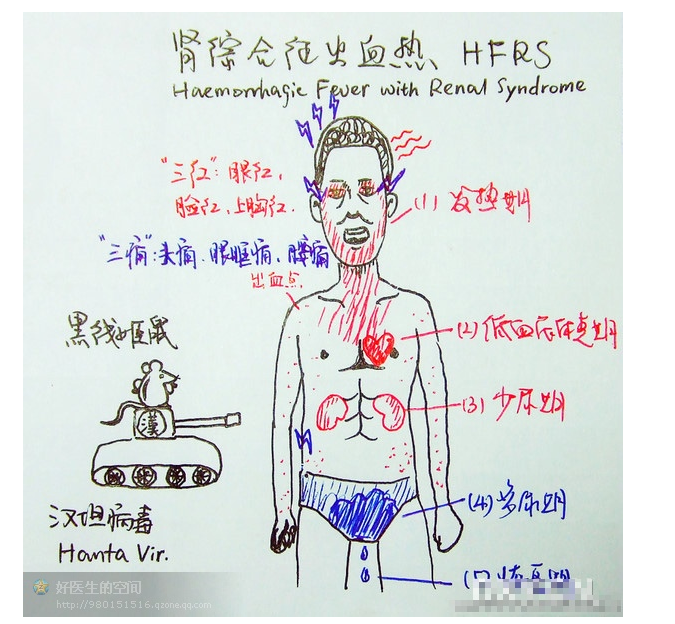 肾综合征出血热、HFRS
Haemorrhagic Fever with Renal Syndrome
"三红":眼红,
脸红,上胸红.
(1) 发热期
"三痛":头痛.眼眶痛.腰痛
出血点.
(2) 低血压休克期
黑线姬鼠
(3) 少尿期
漢
(4) 多尿期
汉坦病毒
Hanta Vir.
(5) 恢复期
好医生的空间
http://980151516.qzone.qq.com